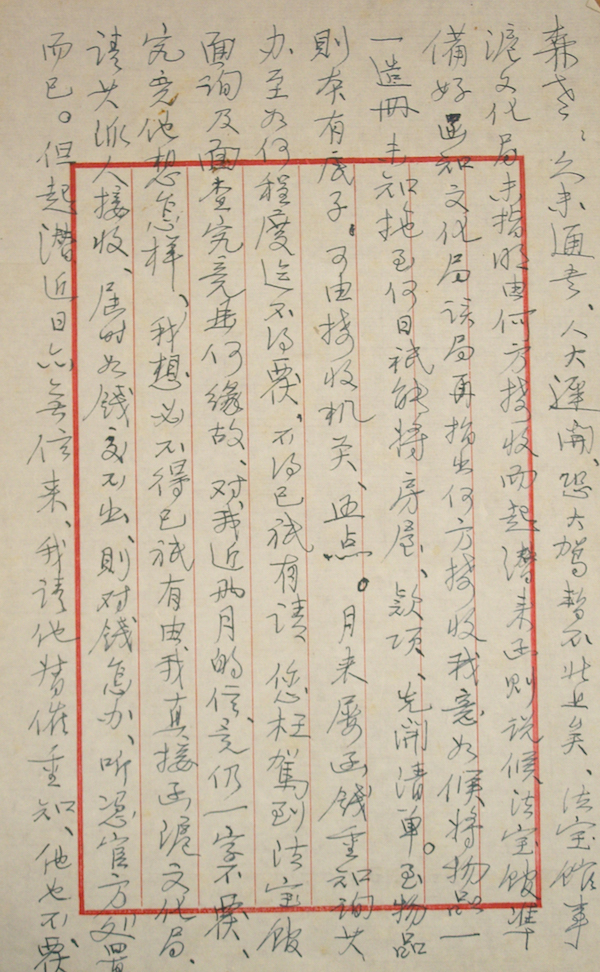 森老：久未通音、人大迟开、恐大驾暂不北上矣、法宝馆事
沪文化局未指明由何方接收而起潜来函则说候法宝馆準
備好函知文化局该局再指出何方接收我意如候将物品一
一造冊未知拖至何日祇能将房屋、款项、先開清单。至物品
則本有底子。可由接收机关、逐点。月来屡函钱重知询其
办至如何程度迄不得覆、不得已祇有请 您枉駕到法宝馆
面询及面查究竟再何缘故、对我近两月的信竟仍一字不覆、
究竟他想怎样、我想必不得已祇有由我直接函滬文化局、
请其派人接收、届时如钱交不出、則对钱怎办、听凭官方处置
而已。但起潜近日亦無信来、我请他督催重知、他也不覆